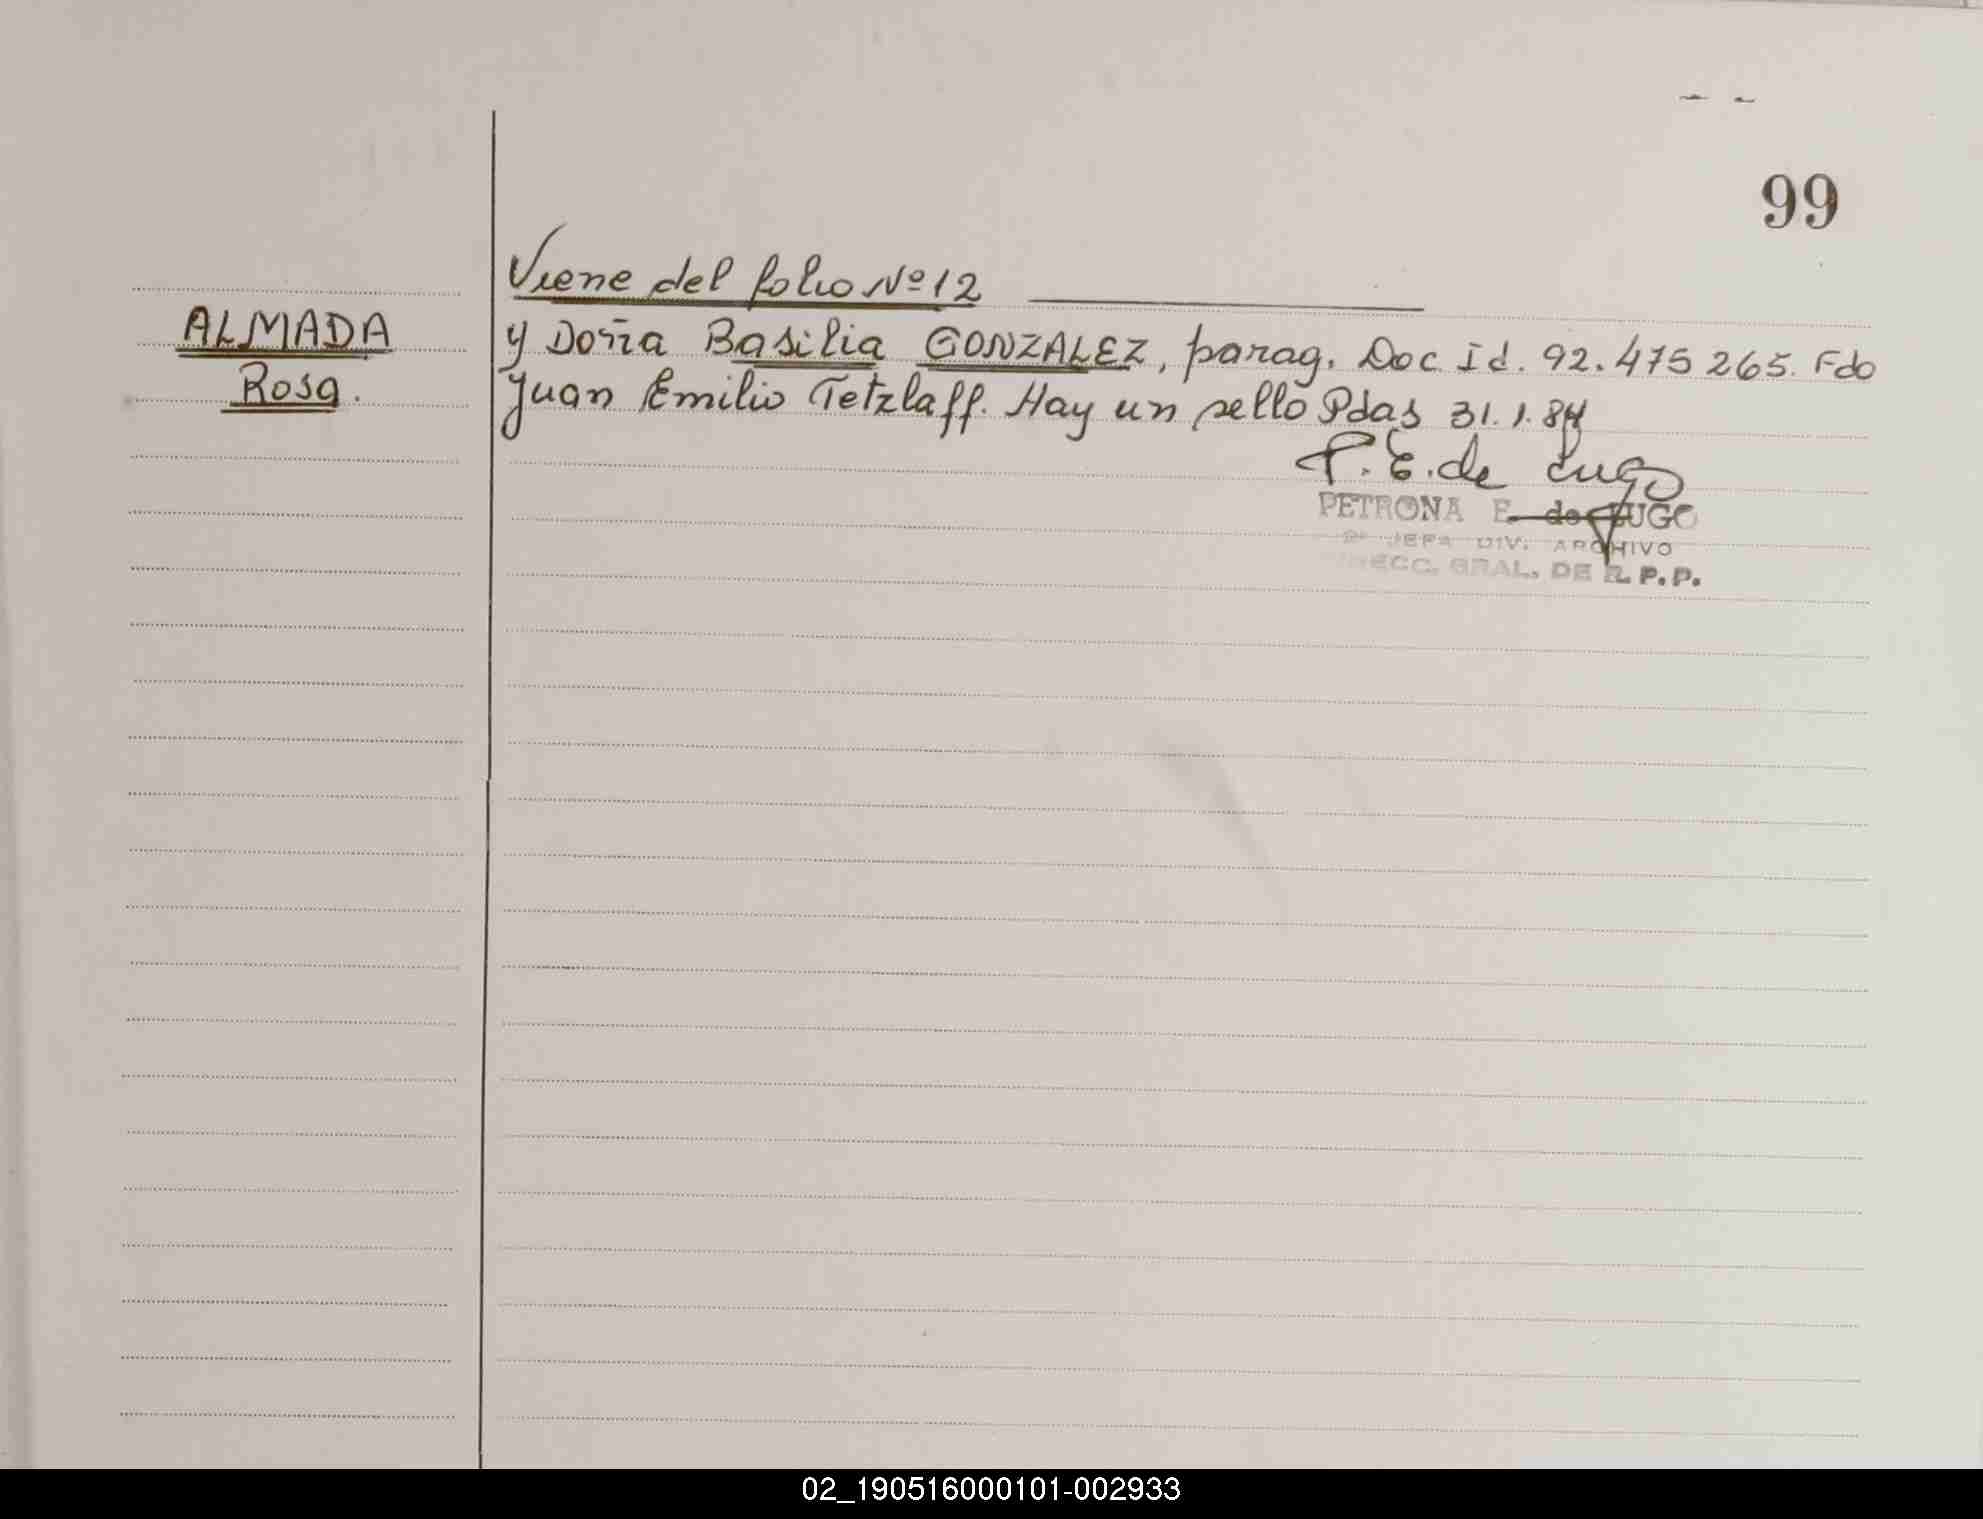 99
Viene del folio Nº 12
ALMADA
Rosa.
y Doña Basilia GONZALEZ, parag. Doc Id. 92.475 265. Fdo
Juan Emilio Tetzlaff. Hay un sello Pdas 31.1.84
P. E. de Lugo
PETRONA E. de LUGO
2ª JEFA DIV. ARCHIVO
DIRECC. GRAL. DE R. P. P.
02_190516000101-002933